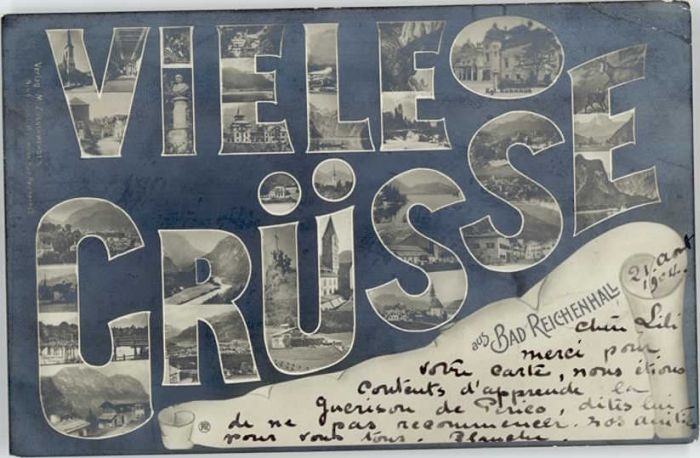 VIELE
GRÜSSE
Kgl. Kurhaus
aus BAD REICHENHALL
21. août
1904.
chère Lili
merci pour
votre carte, nous étions
contents d'apprendre la
guérison de Perico, dites lui
de ne pas recommencer. nos amitiés
pour vous tous. Blanche.